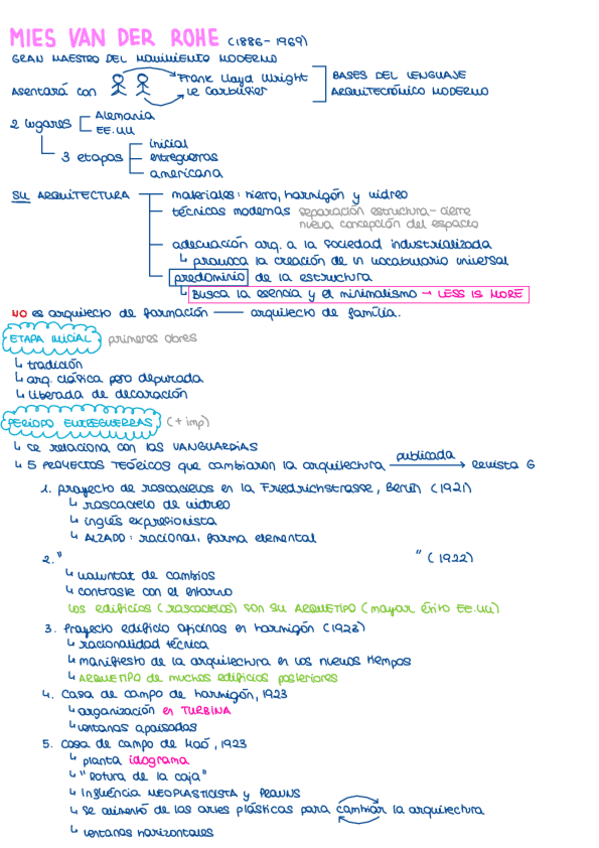 MIES VAN DER ROHE (1886-1969)
GRAN MAESTRO DEL MOVIMIENTO MODERNO
Asentará con Frank Lloyd Wright
Le Corbusier
BASES DEL LENGUAJE
ARQUITECTÓNICO MODERNO
2 lugares Alemania
EE.UU
3 etapas inicial
entreguerras
americana
SU ARQUITECTURA materiales: hierro, hormigón y vidreo
técnicas modernas separación estructura-cierre
nueva concepción del espacio
adecuación arq. a la sociedad industrializada
↳ provoca la creación de un vocabulario universal
predominio de la estructura
↳ Busca la esencia y el minimalismo → LESS IS MORE
NO es arquitecto de formación — arquitecto de familia.
ETAPA INICIAL, primeras obres
↳ tradición
↳ arq. clásica pero depurada
↳ liberada de decoración
PERIODO ENTREGUERRAS (+ imp)
↳ se relaciona con las VANGUARDIAS
↳ 5 PROYECTOS TEÓRICOS que cambiaron la arquitectura publicada → Revista G
1. proyecto de rascacielos en la Friedrichstrasse, Berlín (1921)
↳ rascacielo de vidreo
↳ inglés expresionista
↳ ALZADO: racional, forma elemental
2. " " (1922)
↳ voluntat de cambios
↳ contraste con el entorno
Los edificios (rascacielos) son su ARQUETIPO (mayor éxito EE.UU)
3. Proyecto edificio oficinas en hormigón (1923)
↳ racionalidad técnica
↳ manifiesto de la arquitectura en los nuevos tiempos
↳ ARQUETIPO de muchos edificios posteriores
4. Casa de campo de hormigón, 1923
↳ organización en TURBINA
↳ ventanas apaisadas
5. Casa de campo de 1923
↳ planta idograma
↳ "Rotura de la caja"
↳ Influència NEOPLASTICISTA y PROUNS
↳ Se alimentó de las artes plásticas para cambiar la arquitectura
↳ ventanas horizontales